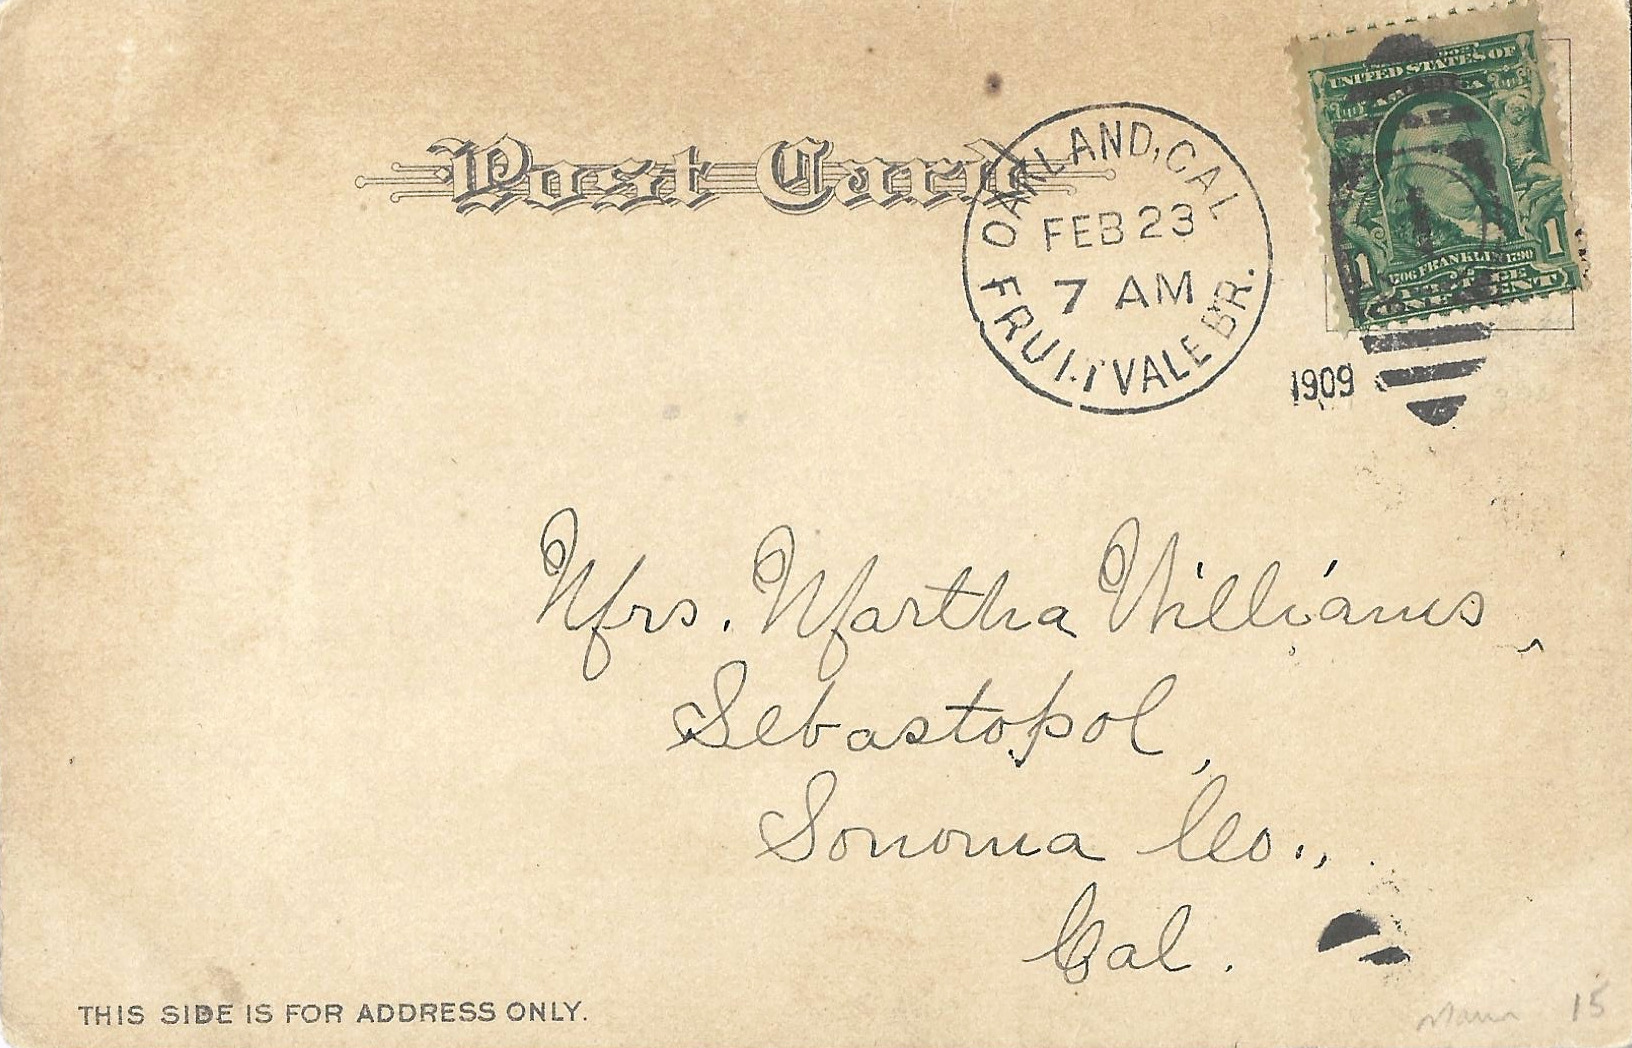 Post Card
OAKLAND, CAL
FEB 23
7 AM
FRUITVALE BR.
1909
UNITED STATES OF
AMERICA
1706 FRANKLIN 1790
1 1
ONE CENT
Mrs. Martha Williams,
Sebastopol,
Sonoma Co.,
Cal.
THIS SIDE IS FOR ADDRESS ONLY.
15